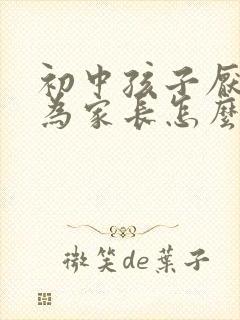 初中孩子厌
为家长怎麼
微笑de葉子